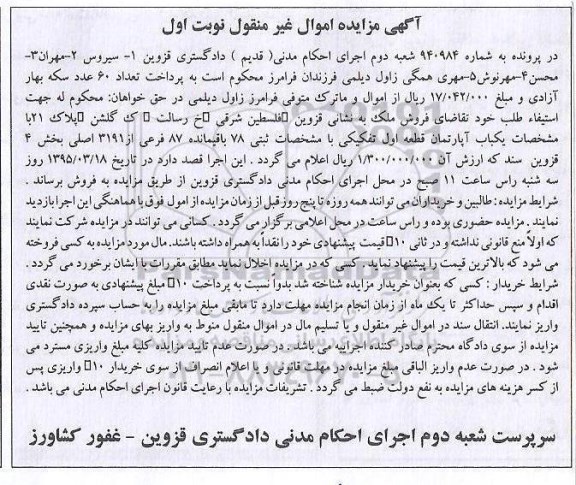 آگهی مزایده اموال غیر منقول نوبت اول
در پرونده به شماره ۹۴۰۹۸۴ شعبه دوم اجرای احکام مدنی( قدیم ) دادگستری قزوین ۱- سیروس ۲-مهران۳-
محسن۴-مهرنوش۵-مهری همگی زاول دیلمی فرزندان فرامرز محکوم است به پرداخت تعداد ۶۰ عدد سکه بهار
آزادی و مبلغ ۱۷/۰۴۲/۰۰۰ ریال از اموال و ماترک متوفی فرامرز زاول دیلمی در حق خواهان: محکوم له جهت
استیفاء طلب خود تقاضای فروش ملک به نشانی قزوین فلسطین شرقی خ رسالت ک گلشن پلاک ۲۱با
مشخصات یکباب آپارتمان قطعه اول تفکیکی با مشخصات ثبتی ۷۸ باقیمانده ۸۷ فرعی از۳۱۹۱ اصلی بخش ۴
قزوین سند که ارزش آن ۱/۳۰۰/۰۰۰/۰۰۰ ریال اعلام می گردد . این اجرا قصد دارد در تاریخ ۱۳۹۵/۰۳/۱۸ روز
سه شنبه راس ساعت ۱۱ صبح در محل اجرای احکام مدنی دادگستری قزوین از طریق مزایده به فروش برساند .
شرایط مزایده : طالبین و خریداران می توانند همه روزه تا پنج روز قبل از زمان مزایده از امول فوق با هماهنگی این اجرا بازدید
نمایند . مزایده حضوری بوده و راس ساعت در محل اعلامی برگزار می گردد . کسانی می توانند در مزایده شرکت نمایند
که اولاً منع قانونی نداشته و در ثانی ۱۰ قیمت پیشنهادی خود را نقداً به همراه داشته باشند. مال مورد مزایده به کسی فروخته
می شود که بالاترین قیمت را پیشنهاد نماید . کسی که در مزایده اخلال نماید مطابق مقررات با ایشان برخورد می گردد .
شرایط خریدار : کسی که بعنوان خریدار مزایده شناخته شد بدواً نسبت به پرداخت ۱۰ مبلغ پیشنهادی به صورت نقدی
اقدام و سپس حداکثر تا یک ماه از زمان انجام مزایده مهلت دارد تا مابقی مبلغ مزایده را به حساب سپرده دادگستری
واریز نمایند. انتقال سند در اموال غیر منقول و یا تسلیم مال در اموال منقول منوط به واریز بهای مزایده و همچنین تایید
مزایده از سوی دادگاه محترم صادر کننده اجرائیه می باشد . در صورت عدم تایید مزایده کلیه مبلغ واریزی مسترد می
شود . در صورت عدم واریز الباقی مبلغ مزایده در مهلت قانونی و یا اعلام انصراف از سوی خریدار ۱۰ واریزی پس
از کسر هزینه های مزایده به نفع دولت ضبط می گردد . تشریفات مزایده با رعایت قانون اجرای احکام مدنی می باشد .
سرپرست شعبه دوم اجرای احکام مدنی دادگستری قزوین - غفور کشاورز